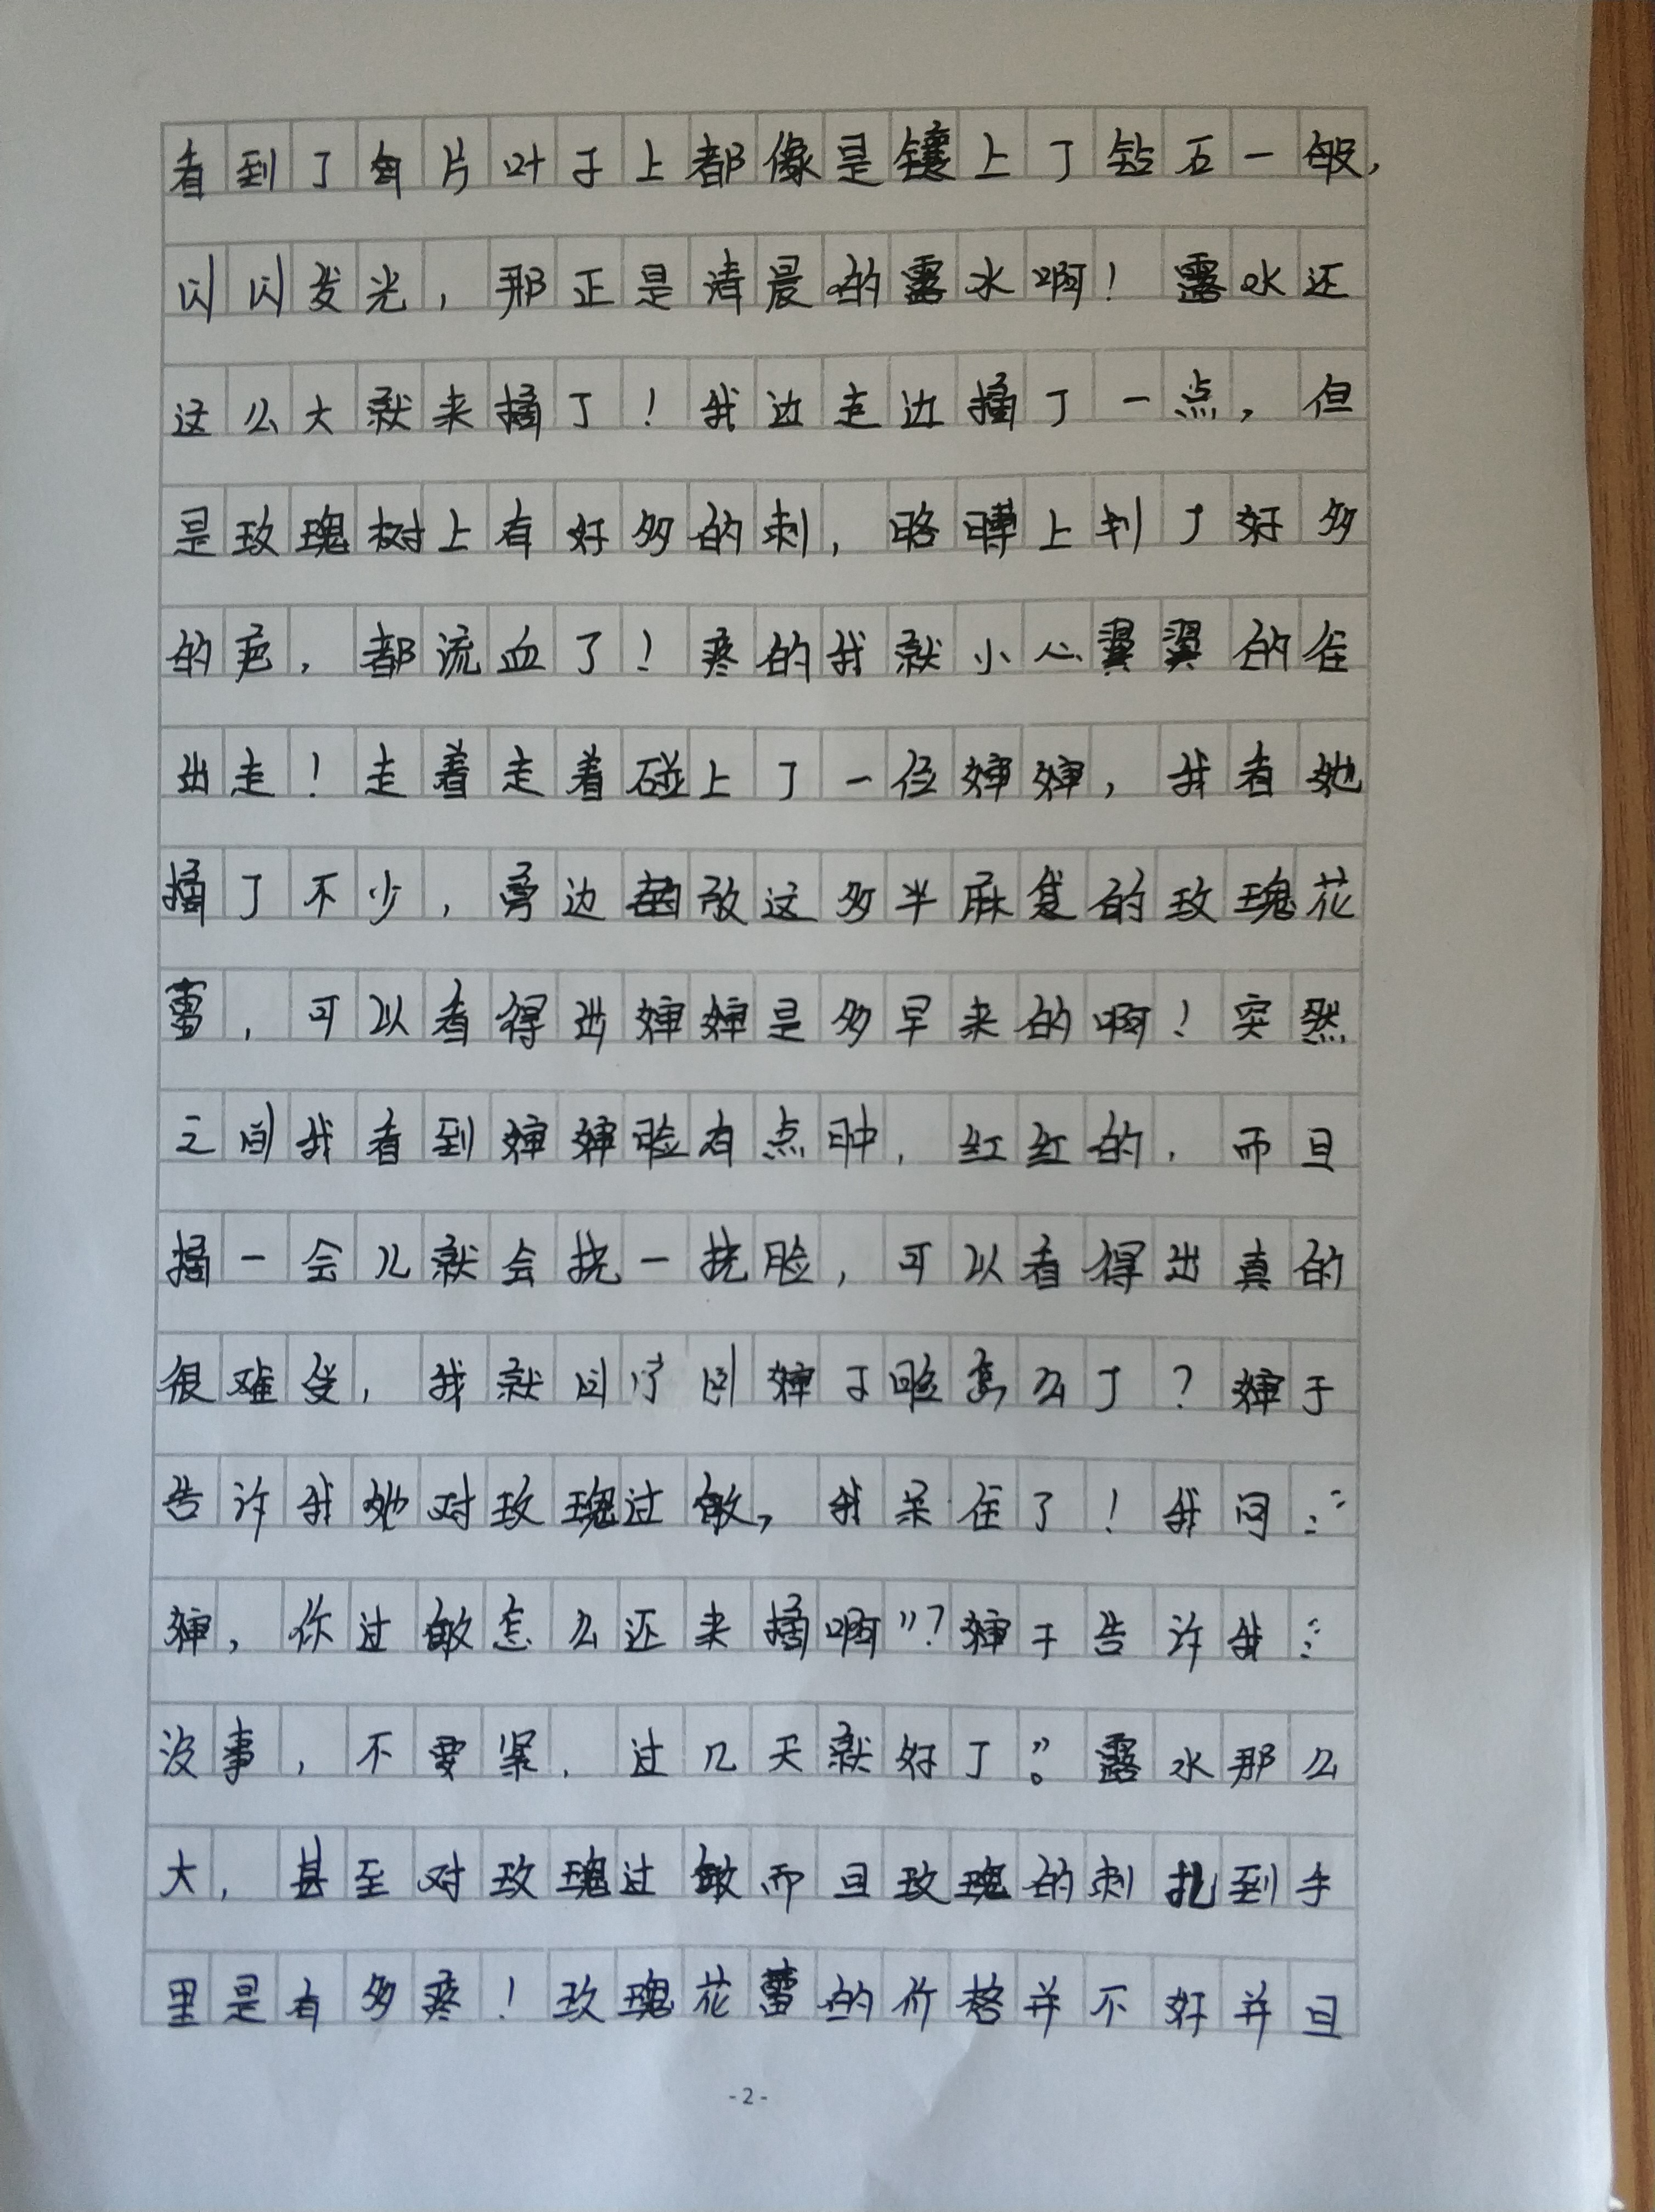 看到了每片叶子上都像是镶上了钻石一般,
闪闪发光,那正是清晨的露水啊!露水还
这么大就来摘了!我边走边摘了一点,但
是玫瑰树上有好多的刺,胳膊上划了好多
的疤,都流血了!疼的我就小心翼翼的往
出走!走着走着碰上了一位婶婶,我看她
摘了不少,旁边放这多半麻袋的玫瑰花
蕾,可以看得出婶婶是多早来的啊!突然
之间我看到婶婶脸有点肿,红红的,而且
摘一会儿就会挠一挠脸,可以看得出真的
很难受,我就问了问婶子脸怎么了?婶子
告许我她对玫瑰过敏,我呆住了!我问:“
婶,你过敏怎么还来摘啊”?婶子告许我:“
没事,不要紧,过几天就好了。”露水那么
大,甚至对玫瑰过敏而且玫瑰的刺扎到手
里是有多疼!玫瑰花蕾的价格并不好并且
-2-